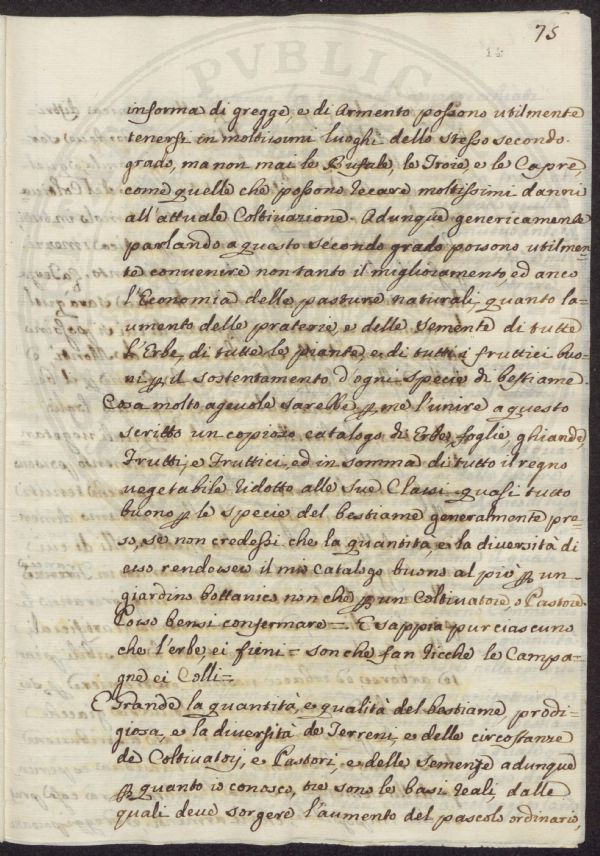 75
14
PVBLIC
informa di gregge, e di Armento possono utilmente
tenersi in moltissimi luoghi dello stesso secondo
grado, ma non mai le Bufale, le Troie, e le Capre,
come quelle che possono recare moltissimi danni
all'attuale Coltivazione. Adunque genericamente
parlando a questo secondo grado possono utilmen=
te convenire non tanto il miglioramento, ed anco
l'Economia delle pasture naturali, quanto l'a=
umento delle praterie, e delle semente di tutte
l'Erbe, di tutte le piante, e di tutti i fruttici buo=
ni p il sostentamento d'ogni specie di bestiame.
Cosa molto agevole sarebbe p me l'unire a questo
scritto un copioso catalogo di Erbe, foglie, ghiande,
Frutti, e Fruttici, ed in somma di tutto il regno
vegetabile ridotto alle sue Classi quasi tutto
buono p le specie del bestiame generalmente pre=
so, se non credessi che la quantità, e la diversità di
esso rendesse il mio catalogo buono al più p un
giardino bottanico non che p un Coltivatore, o Pastore.
Posso bensi confermare = E sappia pur ciascuno
che l'erbe, ei fieni = son che fan ricche le Campa=
gne ei Colli =
Grande la quantità, e qualità del bestiame prodi=
giosa, e la diversità de Terreni, e delle circostanze
de Coltivatorj, e Pastori, e delle semenze adunque
p quanto io conosco, tre sono le basi reali, dalle
quali deve sorgere l'aumento del pascolo ordinario,